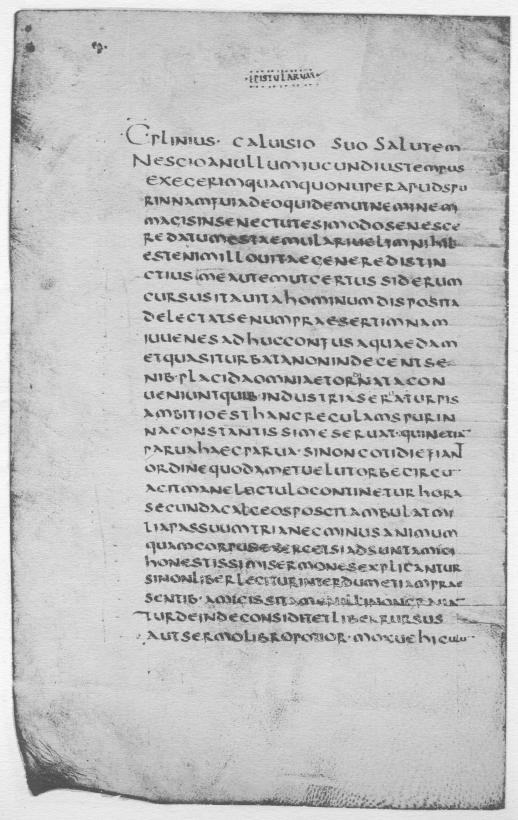 ·EPISTULARUM·
C·PLINIUS· CALUISIO SUO SALUTEM
NESCIOANULLUMIUCUNDIUSTEMPUS
EXEGERIMQUAMQUONUPERAPUDSPU
RINNAMFUIADEOQUIDEMUTNEMINEM
MAGISINSENECTUTESIMODOSENESCE
REDATUMESTAEMULARIUELIMNIHIL
ESTENIMILLOUITAEGENEREDISTIN
CTIUSMEAUTEMUTCERTUSSIDERUM
CURSUSITAUITAHOMINUMDISPOSITA
DELECTATSENUMPRAESERTIMNAM
IUUENESADHUCCONFUSAQUAEDAM
ETQUASITURBATANONINDECENTSE
NIB·PLACIDAOMNIAETORNATACON
UENIUNTQUIB·INDUSTRIASERATURPIS
AMBITIOESTHANCREGULAMSPURIN
NACONSTANTISSIMESERUAT·QUINETIA
PARUAHAECPARUA·SINONCOTIDIEFIANT
ORDINEQUODAMETUELUTORBECIRCU
AGITMANELECTULOCONTINETURHORA
SECUNDACALCEOSPOSCITAMBULATMI
LIAPASSUUMTRIANECMINUSANIMUM
QUAMCORPUSEXERCETSIADSUNTAMICI
HONESTISSIMISERMONESEXPLICANTUR
SINONLIBERLEGITURINTERDUMETIAMPRAE
SENTIB·AMICISSITAMENILLINONGRAUA
TURDEINDECONSIDITETLIBERRURSUS
AUTSERMOLIBROPOTIOR·MOXUEHICULU